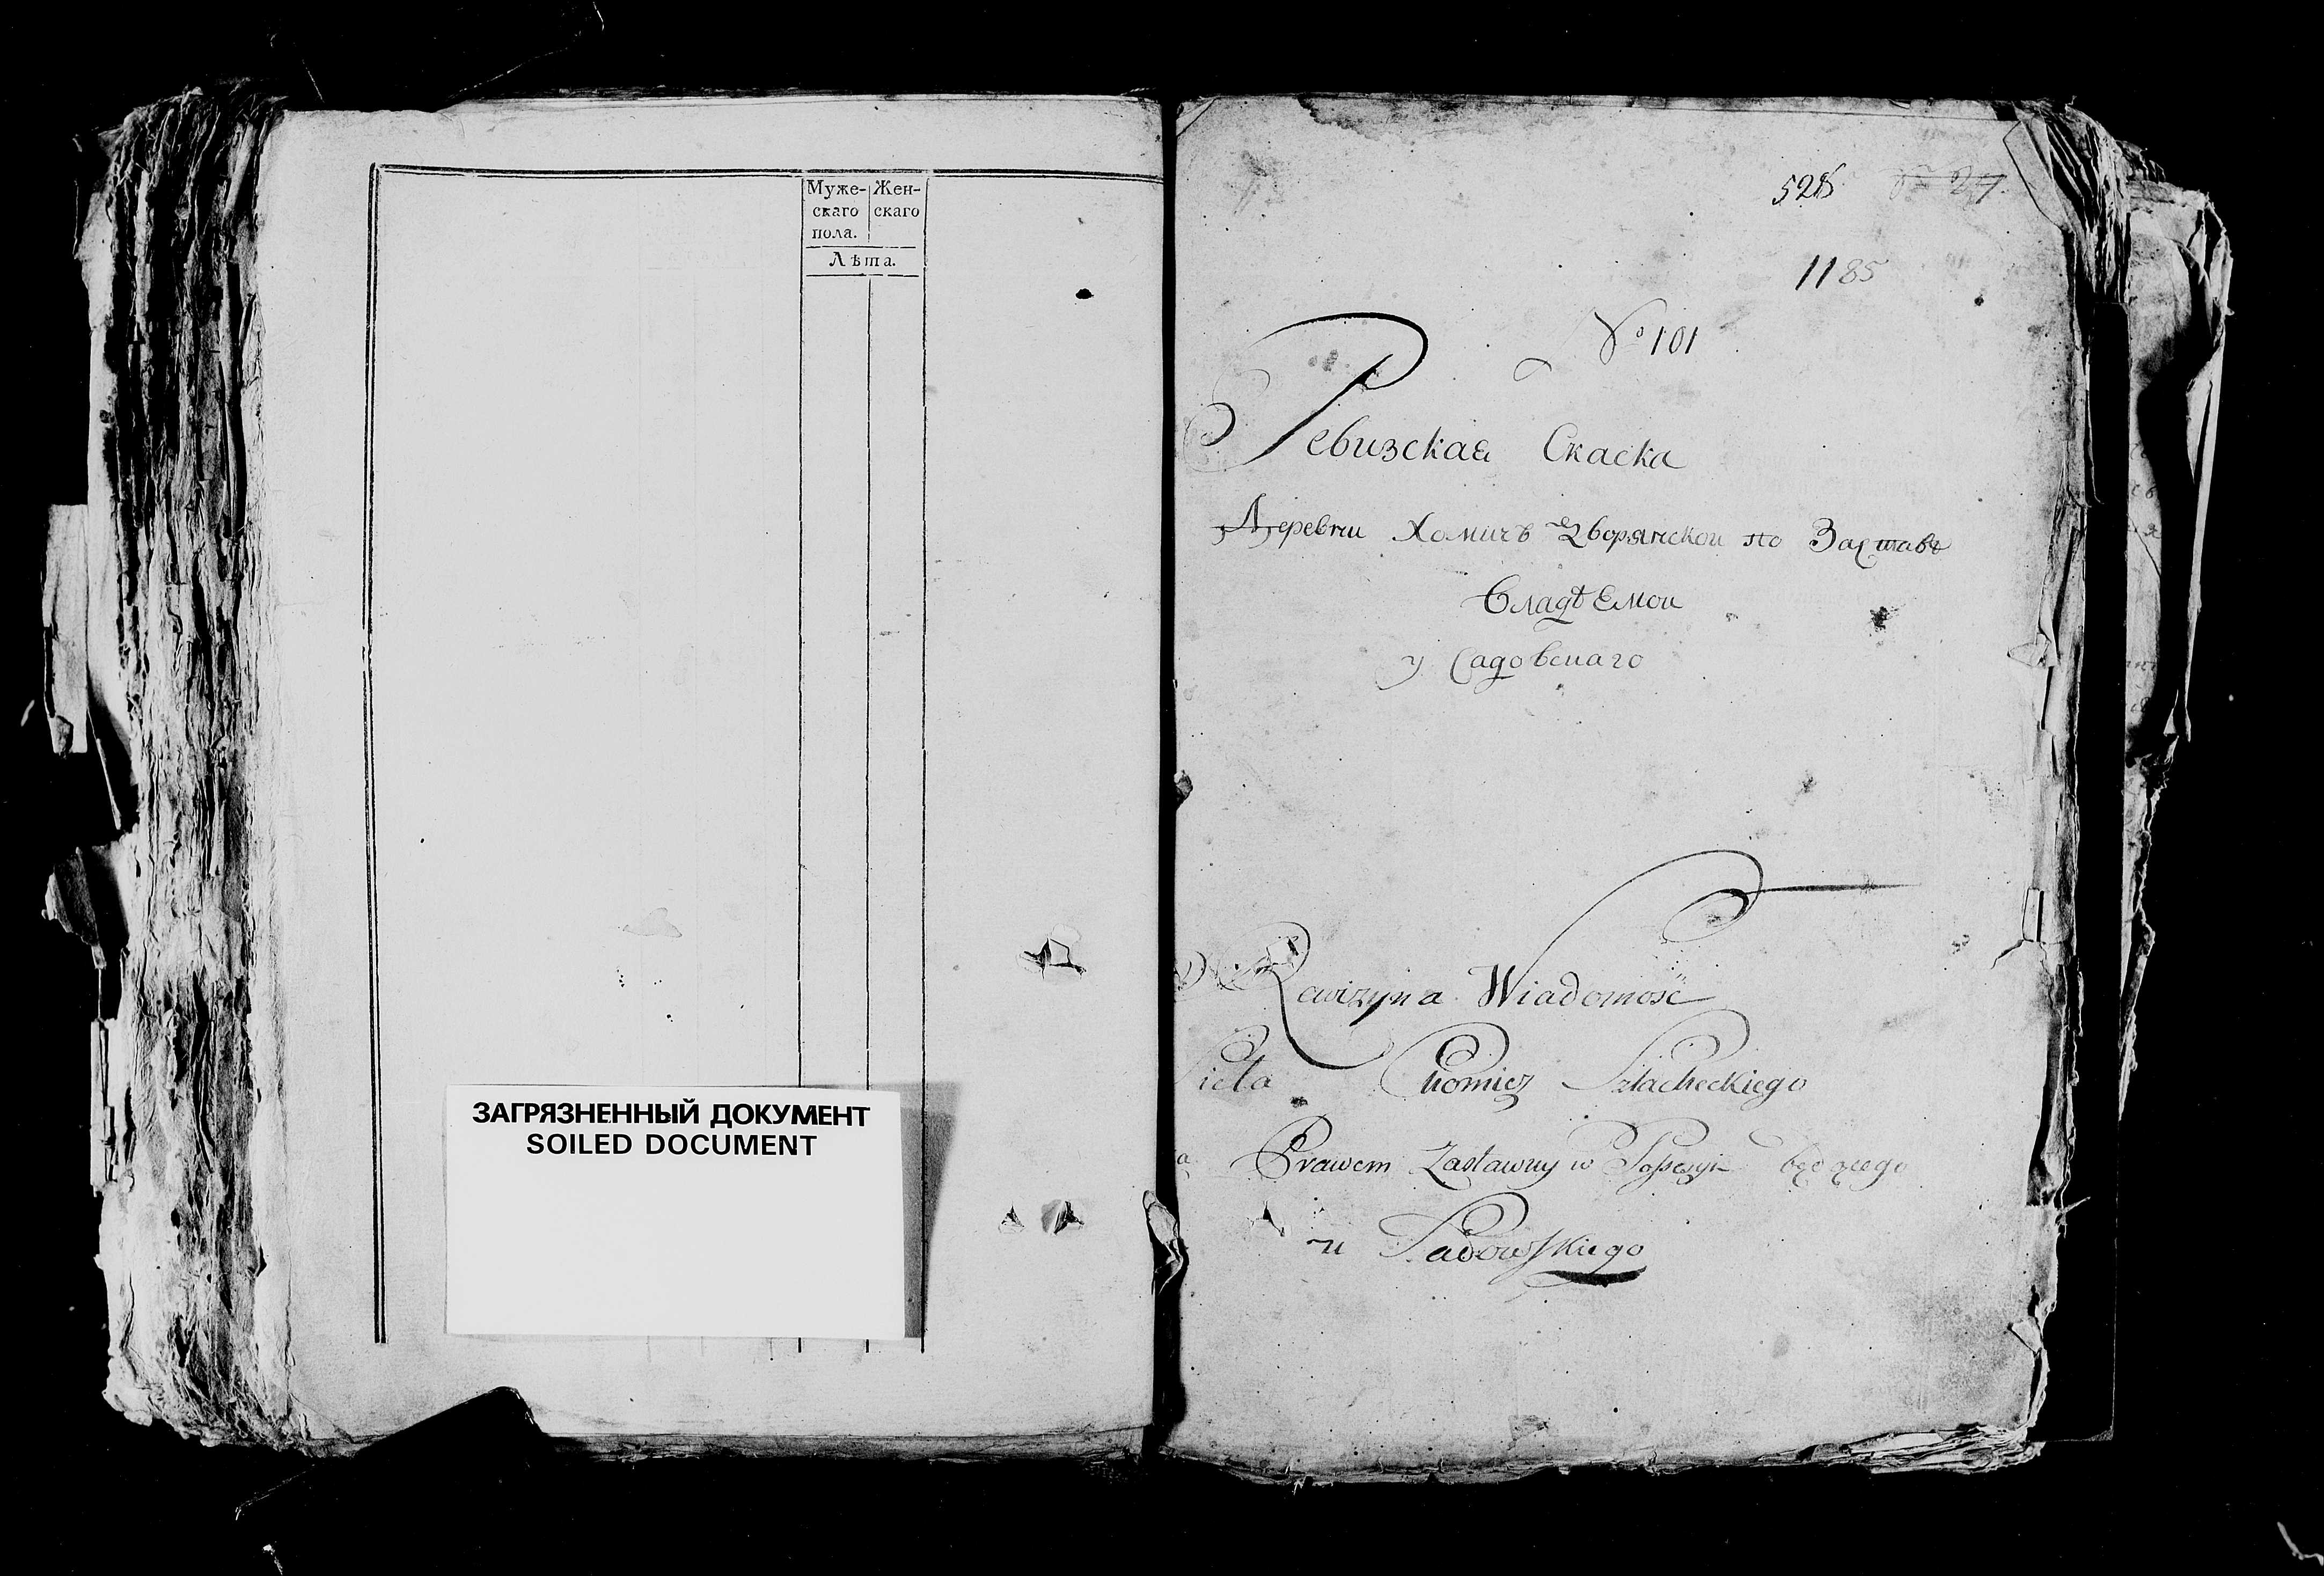 Муже- Жен-
скаго скаго
пола.
Лѣта.
ЗАГРЯЗНЕННЫЙ ДОКУМЕНТ
SOILED DOCUMENT
1185
№ 101
Ревизская Скаска
Деревни Хомичъ Дворянской по Заставѣ
Владѣемой
у Садовскаго
Rewizyina Wiadomosc
Sieła Chomicz Szlacheckiego
Prawem Zastawny w Possesyi będącego
u Sadowskiego